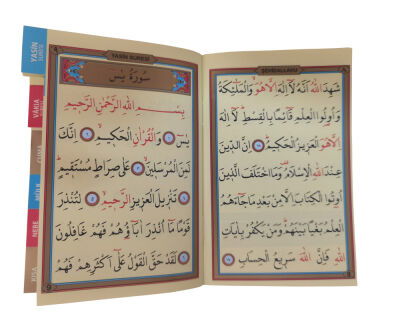 ŞEHİDALLAHU
شَهِدَ اللّٰهُ اَنَّهُ لَٓا اِلٰهَ اِلَّا هُوَۙ وَالْمَلٰٓئِكَةُ
وَاُو۬لُوا الْعِلْمِ قَٓائِمًا بِالْقِسْطِۜ لَٓا اِلٰهَ
اِلَّا هُوَ الْعَزِيزُ الْحَكِيمُ ۝ اِنَّ الدِّينَ
عِنْدَ اللّٰهِ الْاِسْلَامُ۠ وَمَا اخْتَلَفَ الَّذِينَ
اُو۫تُوا الْكِتَابَ اِلَّا مِنْ بَعْدِ مَا جَٓاءَهُمُ
الْعِلْمُ بَغْيًا بَيْنَهُمْۜ وَمَنْ يَكْفُرْ بِاٰيَاتِ
اللّٰهِ فَاِنَّ اللّٰهَ سَرِيعُ الْحِسَابِ
YASİN SURESİ
سُورَةُ يٰسٓ
بِسْمِ اللّٰهِ الرَّحْمٰنِ الرَّحِيمِ
يٰسٓ ۝ وَالْقُرْاٰنِ الْحَكِيمِ ۝ اِنَّكَ
لَمِنَ الْمُرْسَلِينَ ۝ عَلٰى صِرَاطٍ مُسْتَقِيمٍ
۝ تَنْزِيلَ الْعَزِيزِ الرَّحِيمِ ۝ لِتُنْذِرَ
قَوْمًا مَٓا اُنْذِرَ اٰبَٓاؤُ۬هُمْ فَهُمْ غَافِلُونَ
لَقَدْ حَقَّ الْقَوْلُ عَلٰٓى اَكْثَرِهِمْ فَهُمْ
YASİN
VÂKIA
CUMA
MÜLK
NEBE
KISA